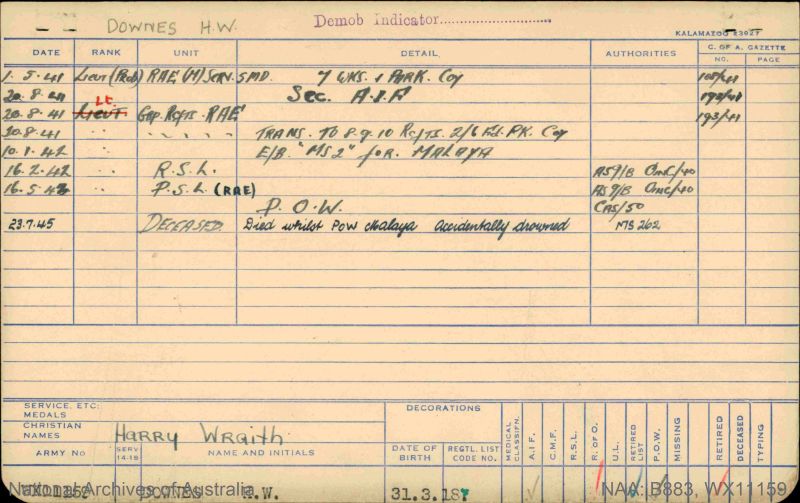 DOWNES H.W.
Demob Indicator
KALAMAZOO 23027
DATE RANK UNIT DETAIL AUTHORITIES C. OF A. GAZETTE
NO. PAGE
1.5.41 Lieut (Prob) RAE (M) SERV. 5MD. 7 WKS. & PARK. Coy 105/41
20.8.41 Sec. A.I.F 192/41
20.8.41 Lieut LT Gep. Rcfts. RAE 193/41
20.8.41 " " " " " TRANS. TO 8.9.10 Rcfts. 2/6 Fd. PK. Coy
10.1.42 " E/B. "MS 2" for. MALAYA
16.2.42 " R.S.L. AS9/B OMC/40
16.5.42 " P.S.L. (RAE) AS9/B OMC/40
P.O.W. CAS/50
23.7.45 DECEASED Died whilst POW Malaya Accidentally drowned MS 262
SERVICE, ETC:
MEDALS
DECORATIONS
CHRISTIAN
NAMES Harry Wraith
ARMY No SERV 14-18 NAME AND INITIALS DATE OF BIRTH REGTL. LIST CODE NO. MEDICAL CLASSIFN. A.I.F. C.M.F. R.S.L. R. OF O. U.L. RETIRED LIST P.O.W. MISSING RETIRED DECEASED TYPING
DOWNES H.W. 31.3.18
National Archives of Australia NAA: B883, WX11159